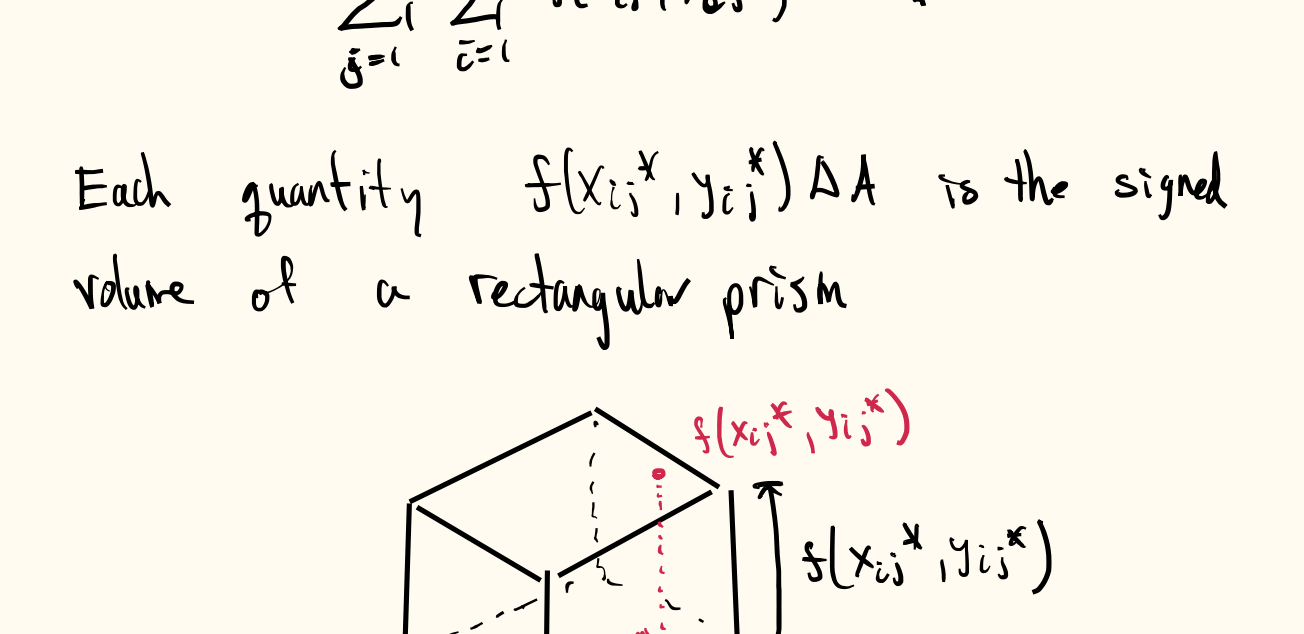 j=1 i=1
Each quantity f(xij*, yij*) ΔA is the signed
volume of a rectangular prism
f(xij*, yij*)
f(xij*, yij*)